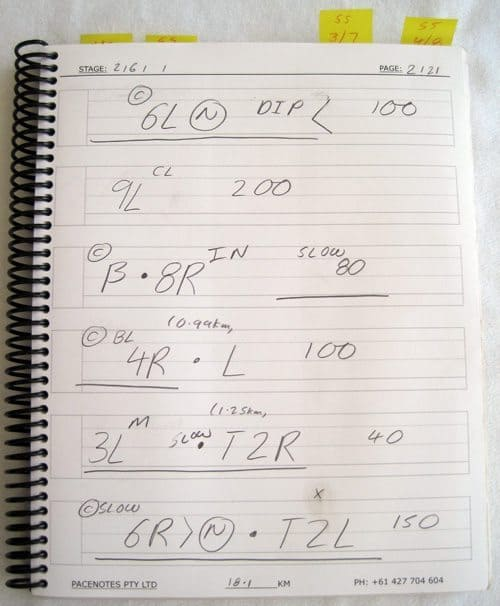 SS
3/7
SS
STAGE: 2/6/ 1
PAGE: 2/21
Ⓒ
6L Ⓝ DIP < 100
9L CL 200
Ⓒ
B • 8R IN SLOW 80
(0.99km,
Ⓒ BL
4R • L 100
(1.25km,
3L M SLOW • T2R 40
Ⓒ SLOW
x
6R > Ⓝ • T2L 150
PACENOTES PTY LTD 18.1 KM PH: +61 427 704 604